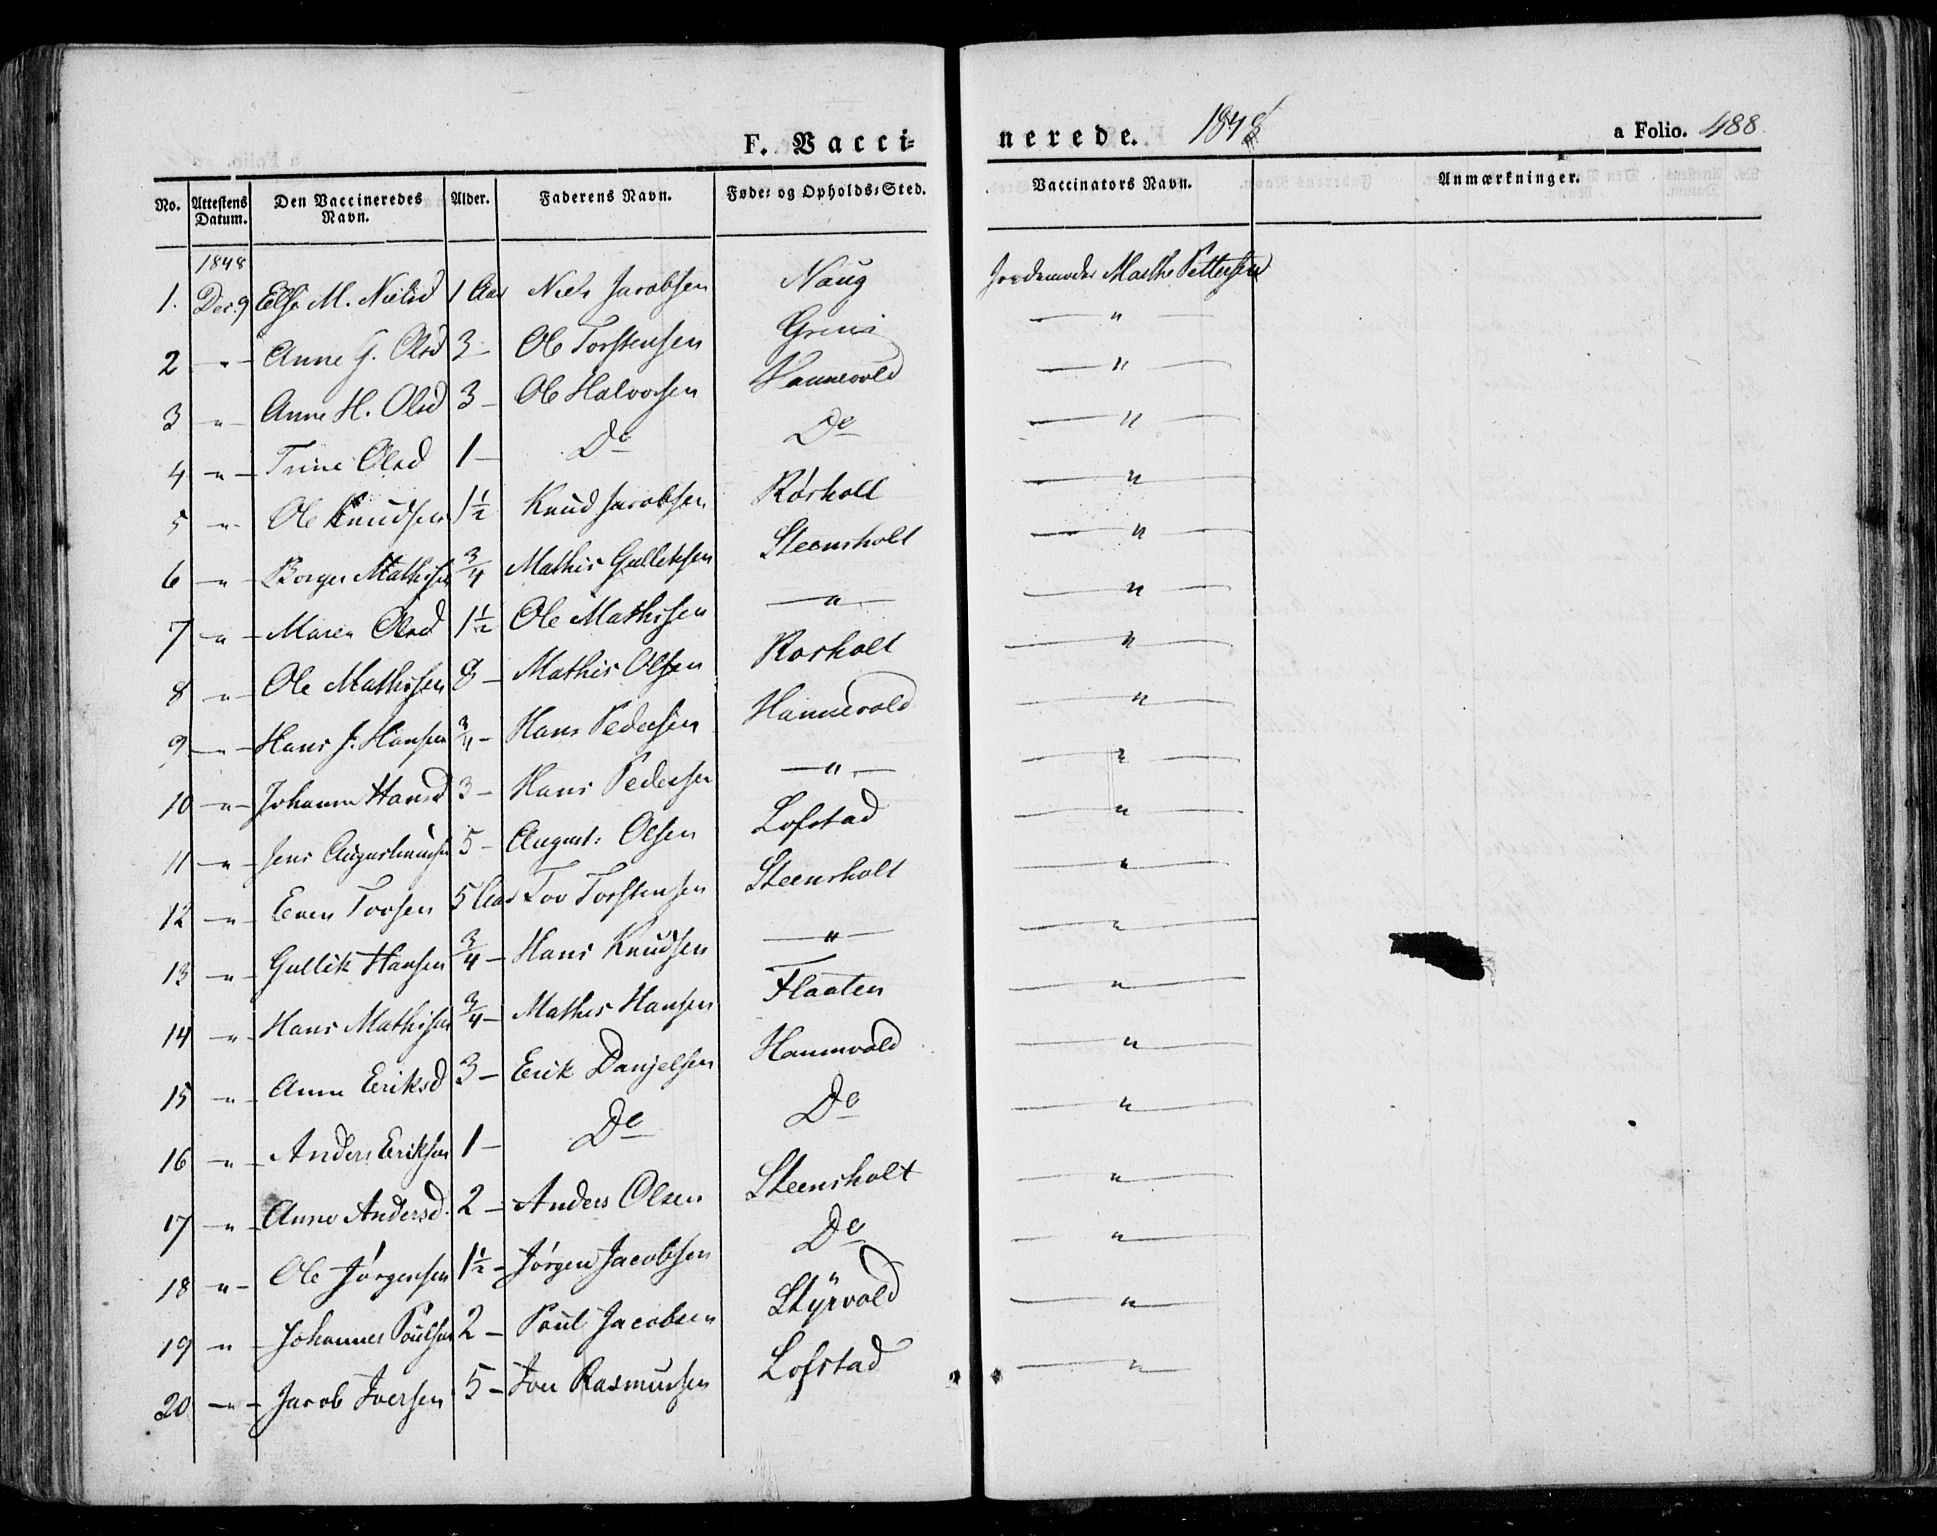 F. Vaccinerede. 1848 a Folio. 488.
No. | Attestens Datum. | Den Vaccineredes Navn. | Alder. | Faderens Navn. | Føde- og Opholds-Sted. | Vaccinators Navn. | Anmærkninger.
1848
1. | Dec. 9 | Else M. Nielsd | 1 Aar | Niels Jacobsen | Naug | Jordemoder Marthe Pettersen
2 | " | Anne G. Olsd | 3 - | Ole Torstensen | | "
3 | " | Anne H. Olsd | 3 - | Ole Halvorsen | Hannevold | "
4 | " | Trine Olsd | 1 - | Do | Do | "
5 | " | Ole Knudsen | 1½ | Knud Jacobsen | Rørholt | "
6 | " | Borger Mathisen | ¾ | Mathis Gulliksen | Steensholt | "
7 | " | Maren Olsd | 1½ | Ole Mathisen | " | "
8 | " | Ole Mathisen | 8 - | Mathis Olsen | Rorholt | "
9 | " | Hans J. Hansen | ¾ - | Hans Pedersen | Hannevold | "
10 | " | Johanne Hansd | 3 - | Hans Pedersen | " | "
11 | " | Jens Augustinusen | 5 - | August: Olsen | Lofstad | "
12 | " | Even Tovsen | 5 Aar | Tov Torstensen | Steensholt | "
13 | " | Gullik Hansen | ¾ - | Hans Knudsen | " | "
14 | " | Hans Mathisen | ¾ - | Mathis Hansen | Flaaten | "
15 | " | Anne Eriksd | 3 - | Erik Danjelsen | Hannevold | "
16 | " | Anders Eriksen | 1 - | Do | Do | "
17 | " | Anne Andersd. | 2 - | Anders Olsen | Steensholt | "
18 | " | Ole Jørgensen | 1½ - | Jørgen Jacobsen | Do | "
19 | " | Johannes Poulsen | 2 - | Poul Jacobsen | Styrvold | "
20 | " | Jacob Iversen | 5 - | Iver Rasmussen | Lofstad | "